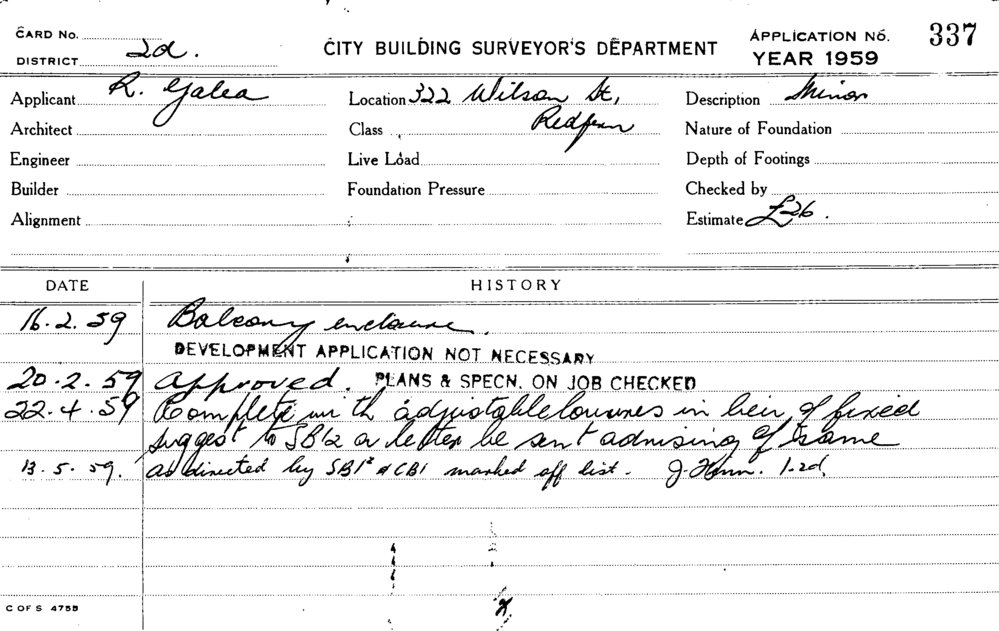 CARD No.
DISTRICT 2d.
CITY BUILDING SURVEYOR'S DEPARTMENT
APPLICATION No. 337
YEAR 1959
Applicant R. Galea
Location 322 Wilson St,
Redfern
Description Minor
Architect
Class
Nature of Foundation
Engineer
Live Load
Depth of Footings
Builder
Foundation Pressure
Checked by
Alignment
Estimate £26.
DATE HISTORY
16.2.59 Balcony enclosure.
DEVELOPMENT APPLICATION NOT NECESSARY
20.2.59 Approved. PLANS & SPECN. ON JOB CHECKED
22.4.59 Complete with adjustable louvres in lieu of fixed
suggest to SB12 a letter be sent advising of same
13.5.59. as directed by SB1² & CB1 marked off list. J. 1.2d.
C OF S 475B